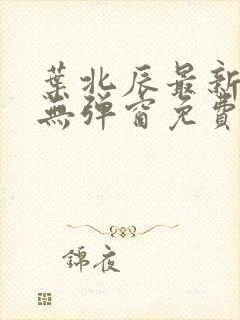 葉北辰最新
無彈窗免費
錦夜